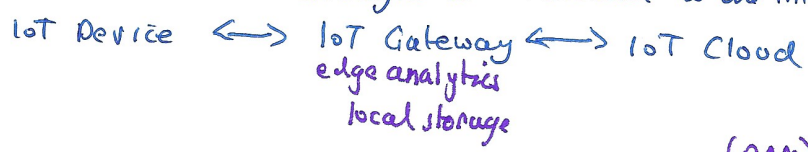 IoT Device <-> IoT Gateway <-> IoT Cloud
edge analytics
local storage